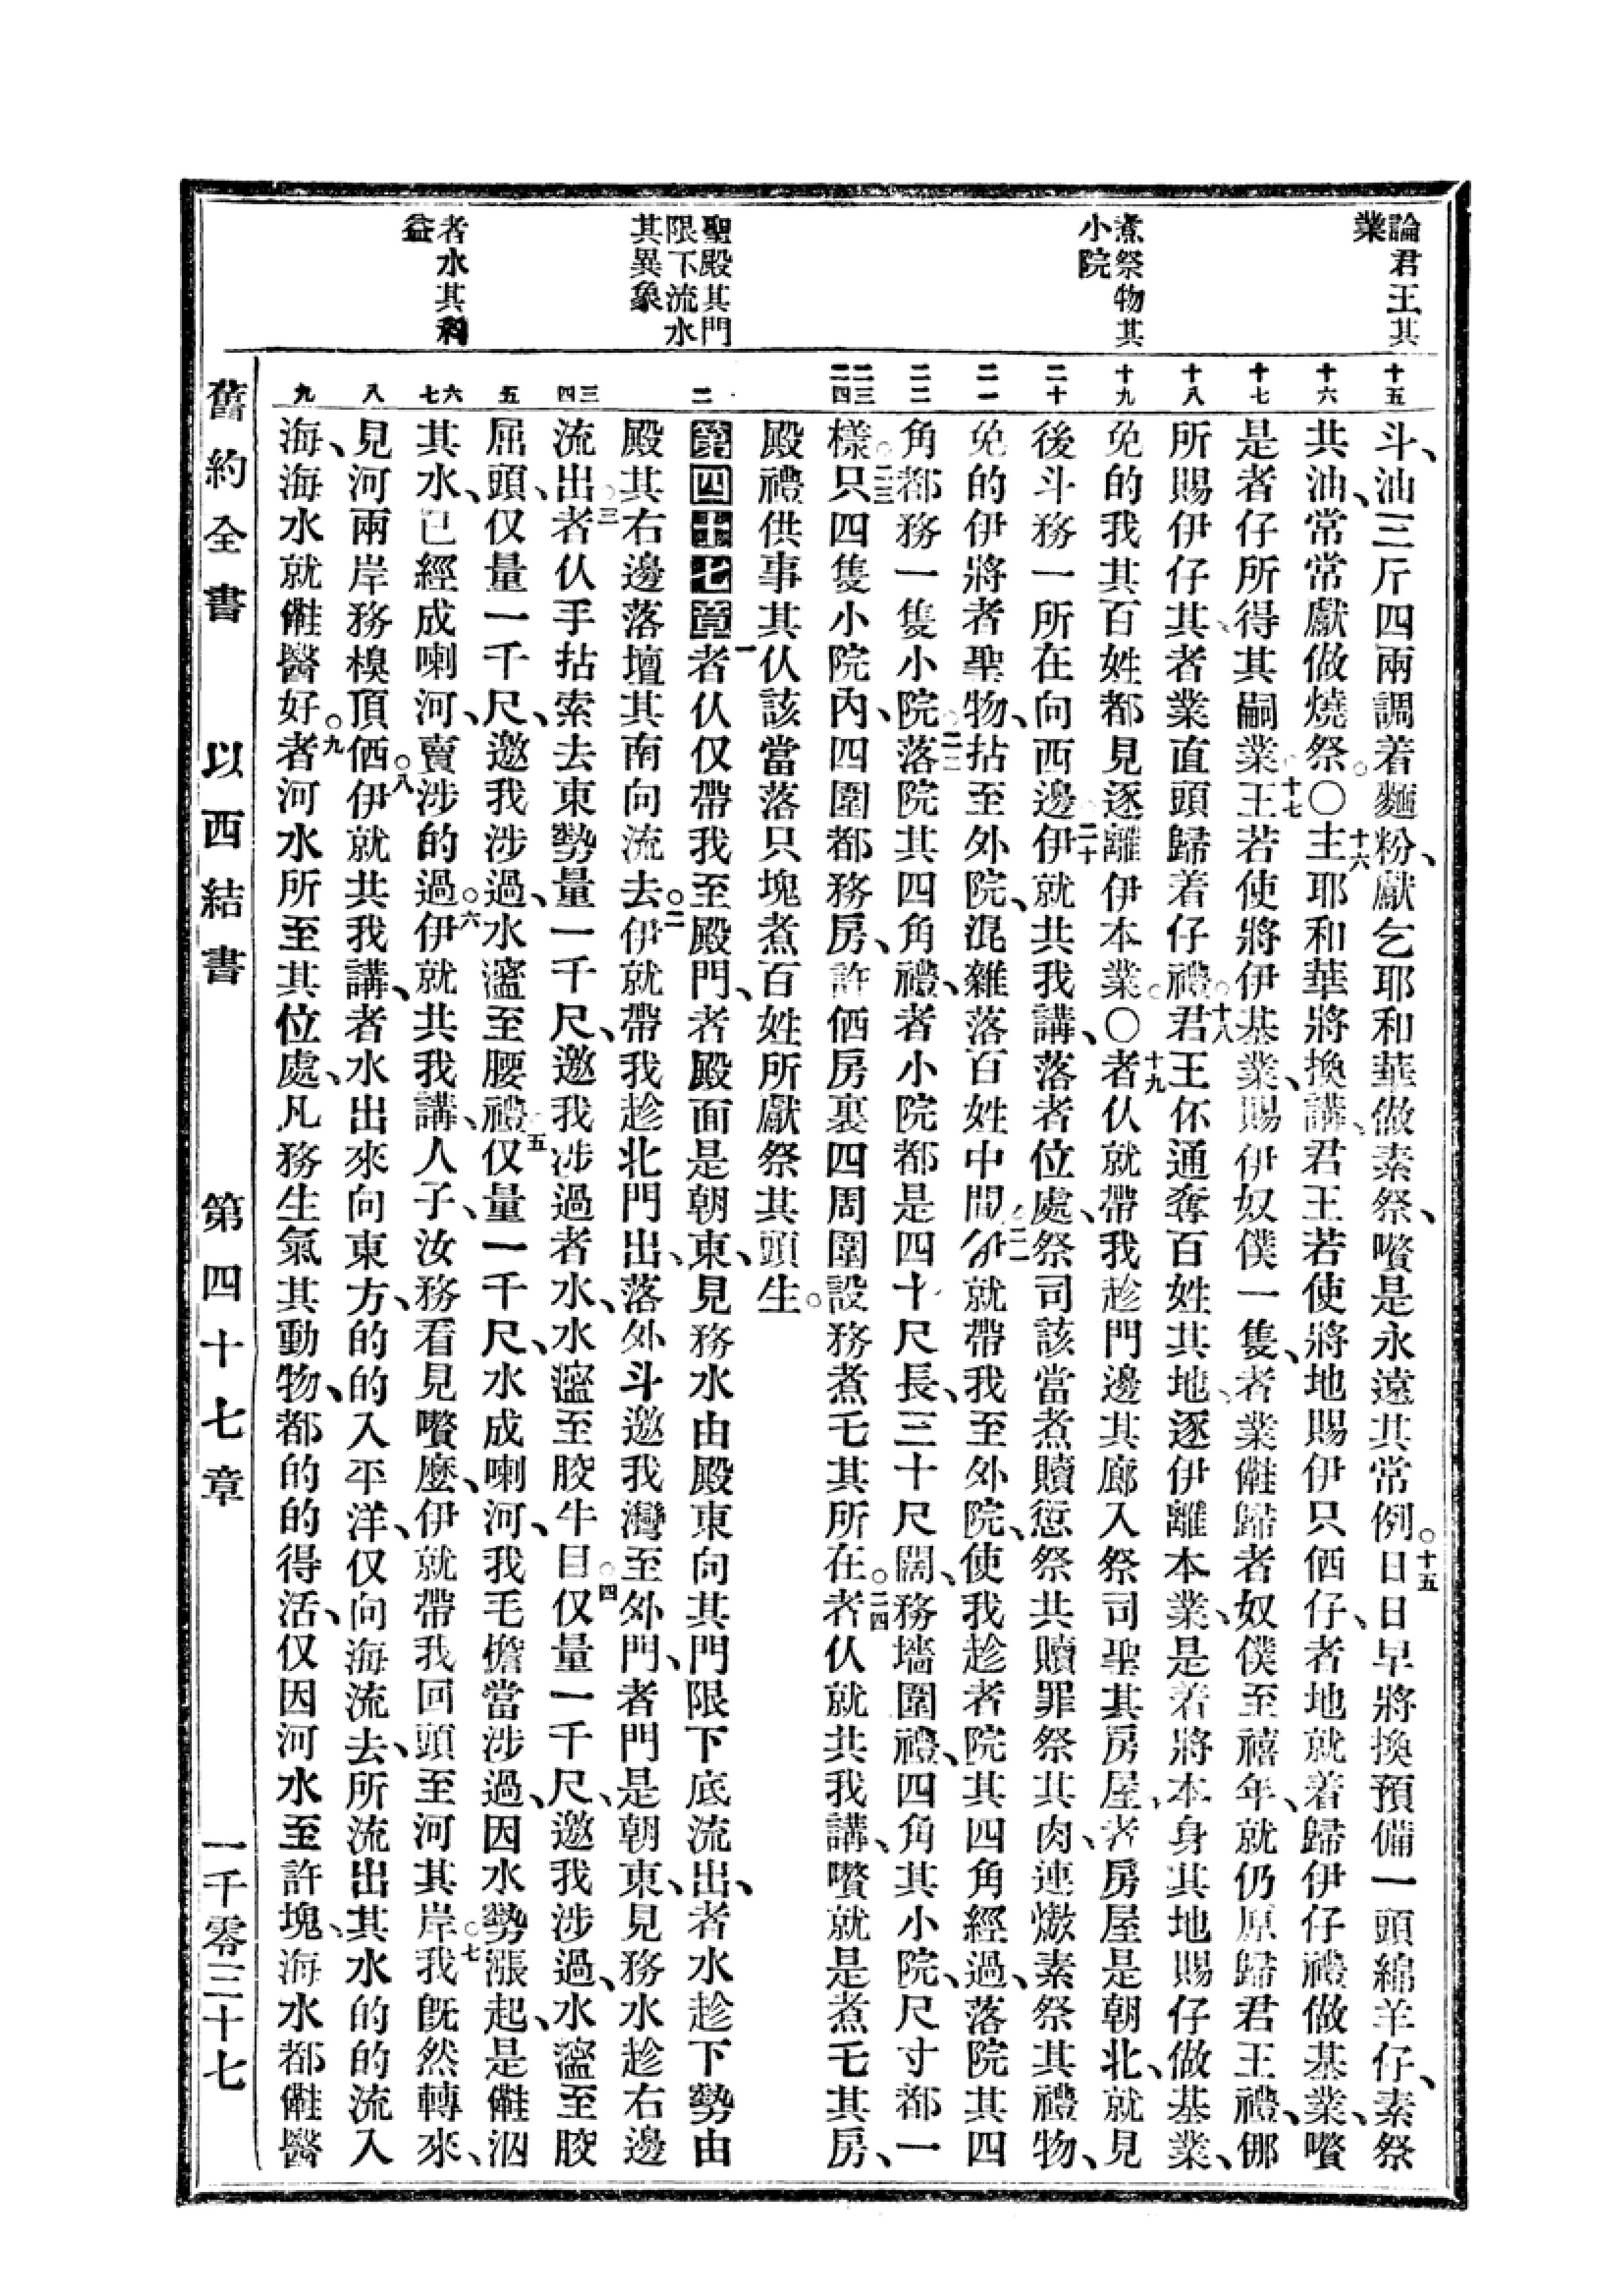 論君王其
業
煮祭物其
小院
聖殿其門
限下流水
其異象
者水其利
益
十五
十六
十七
十八
十九
二十
二一
二二
二三
二四
二
三
四
五
六
七
八
九
斗、油三斤四兩調着麵粉、獻乞耶和華做素祭、嚽是永遠其常例。十五日日早將換預備一頭綿羊仔、素祭
共油、常常獻做燒祭。〇十六主耶和華將換講、君王若使將地賜伊只㑚仔、者地就着歸伊仔禮做基業、嚽
是者仔所得其嗣業。十七王若使將伊基業、賜伊奴僕一隻、者業㒕歸者奴僕至禧年、就仍原歸君王禮、㑚
所賜伊仔其、者業直頭歸着仔禮。十八君王伓通奪百姓其地、逐伊離本業、是着將本身其地賜仔做基業、
免的我其百姓都見逐離伊本業。〇十九者仈就帶我趁門邊其廊入祭司聖其房屋、者房屋是朝北、就見
後斗務一所在向西邊。二十伊就共我講、落者位處、祭司該當煮贖愆祭共贖罪祭其肉、連㷫素祭其禮物、
免的伊將者聖物、拈至外院、混雜落百姓中間。二一伊就帶我至外院、使我趁者院其四角經過、落院其四
角都務一隻小院。二二落院其四角禮、者小院都是四十尺長、三十尺闊、務墻圍禮、四角其小院、尺寸都一
樣。二三只四隻小院內、四圍都務房、許㑚房裏四周圍設務煮乇其所在。二四者仈就共我講、嚽就是煮乇其房、
殿禮供事其仈該當落只塊煮百姓所獻祭其頭生。
第四十七章 一者仈仅帶我至殿門、者殿面是朝東、見務水由殿東向其門、門限下底流出、者水趁下勢由
殿其右邊落壇其南向流去。二伊就帶我趁北門出、落外斗邀我灣至外門、者門是朝東、見務水趁右邊
流出。三者仈手拈索去東勢量一千尺、邀我涉過者水、水㴷至骹牛目。四仅量一千尺、邀我涉過、水㴷至骹
屈頭、仅量一千尺、邀我涉過、水㴷至腰禮。五仅量一千尺、水成喇河、我毛擔當涉過、因水勢漲起、是㒕泅
其水、已經成喇河、賣涉的過。六伊就共我講、人子、汝務看見嚽麽、伊就帶我回頭至河其岸。七我旣然轉來、
見河兩岸務樹頂㑚。八伊就共我講、者水出來向東方、的的入平洋、仅向海流去、所流出其水的的流入
海、海水就㒕醫好。九者河水所至其位處、凡務生氣其動物、都的的得活、仅因河水至許塊、海水都㒕醫
舊約全書 以西結書 第四十七章 一千零三十七